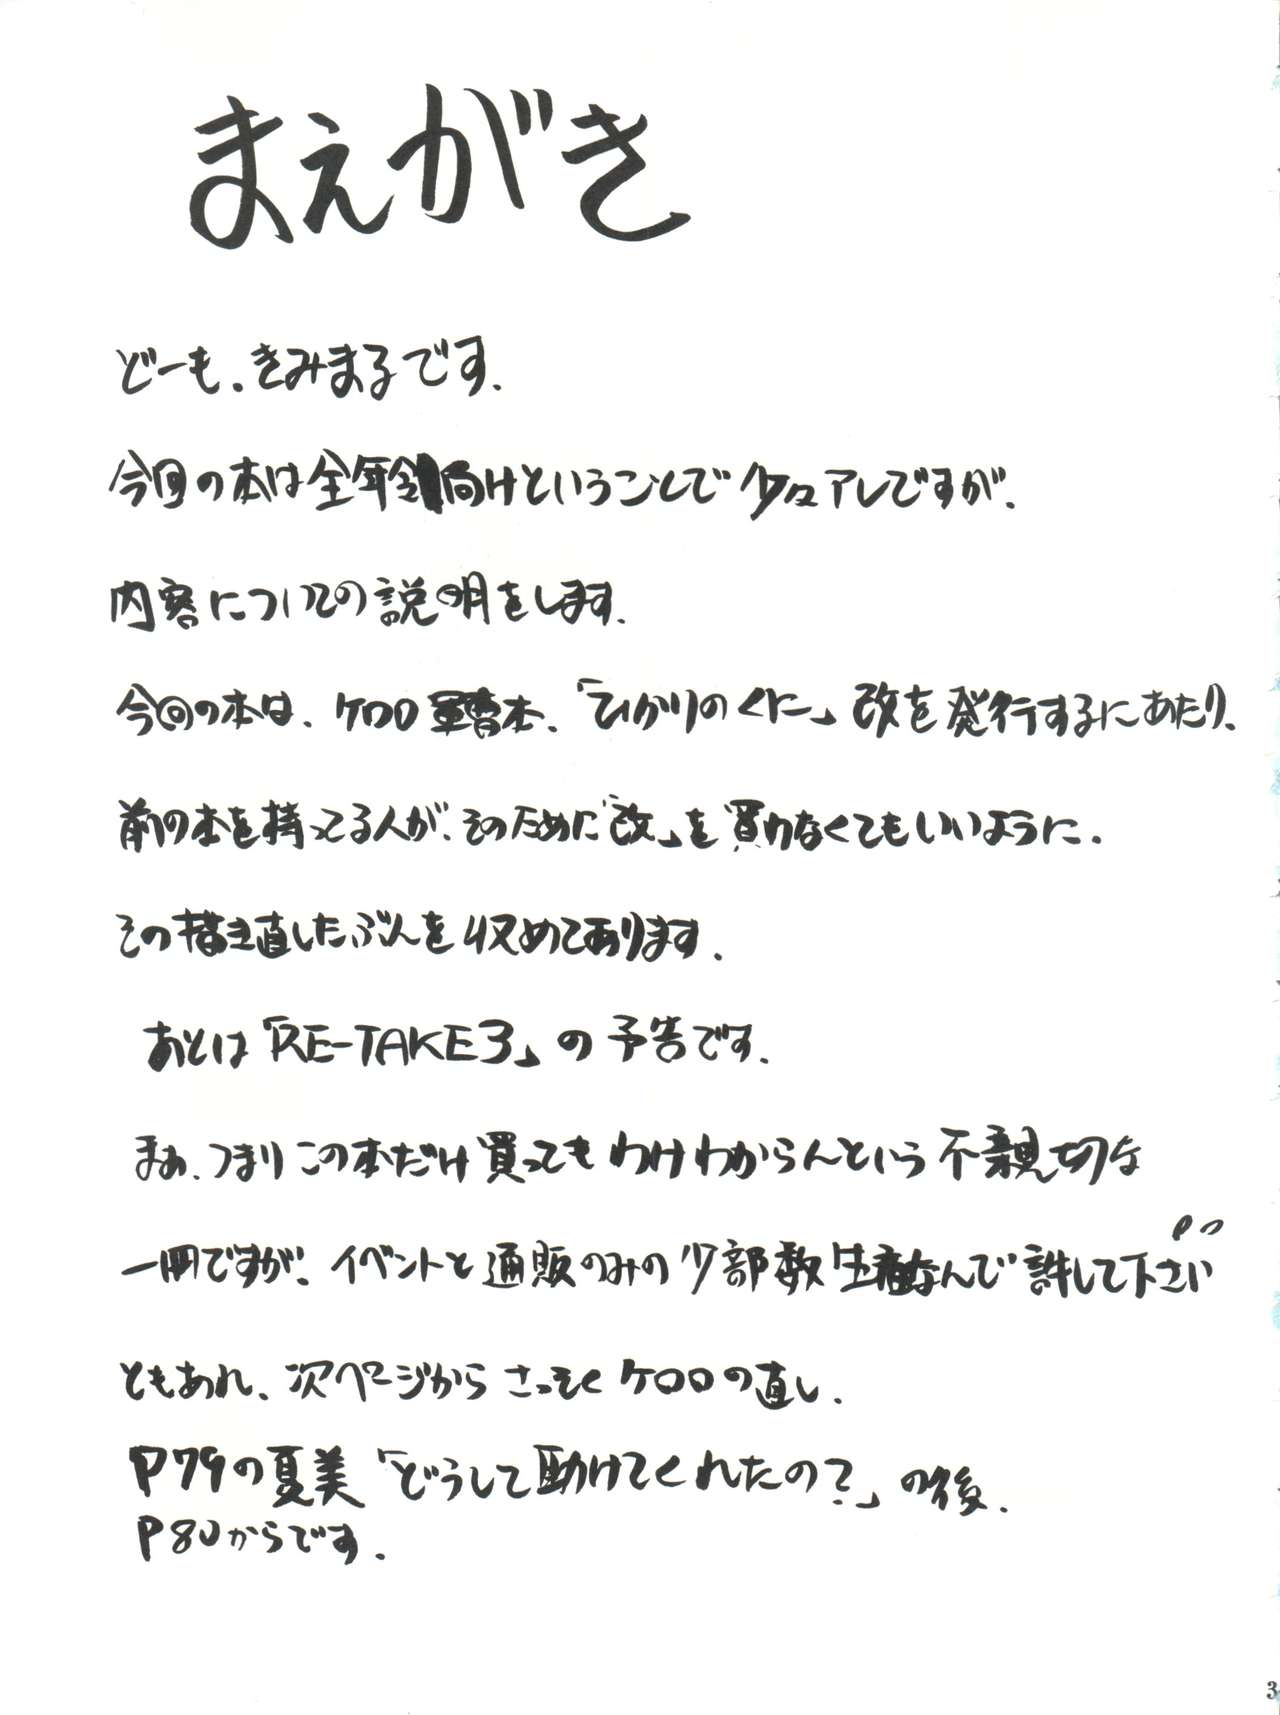 まえがき
どーも、きみまるです.
今回の本は全年令向けということで少々アレですが、
内容についての説明をします.
今回の本は、ケロロ軍曹本、「ひかりのくに」改を発行するにあたり、
前の本を持ってる人が、そのために「改」を買わなくてもいいように、
その描き直したぶんを収めてあります.
あとは「RE-TAKE3」の予告です.
まあ、つまりこの本だけ買ってもわけわからんという不親切な
一冊ですが、イベントと通販のみの少部数生産なんで許して下さい
ともあれ、次ページからさっそくケロロの直し、
P79の夏美「どうして助けてくれたの?」の後、
P80からです.
3